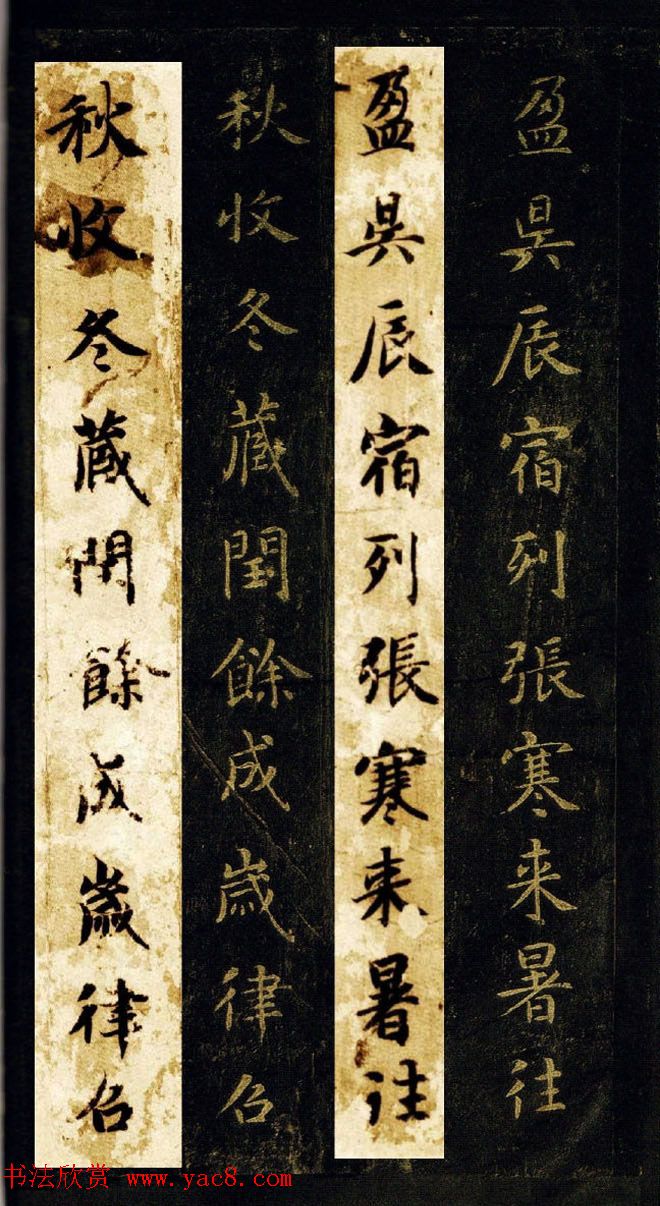 盈昃辰宿列張寒来暑往
盈昃辰宿列張寒来暑往
秋收冬蔵閏餘成歳律召
秋收冬蔵閏餘成歳律召
书法欣赏 www.yac8.com